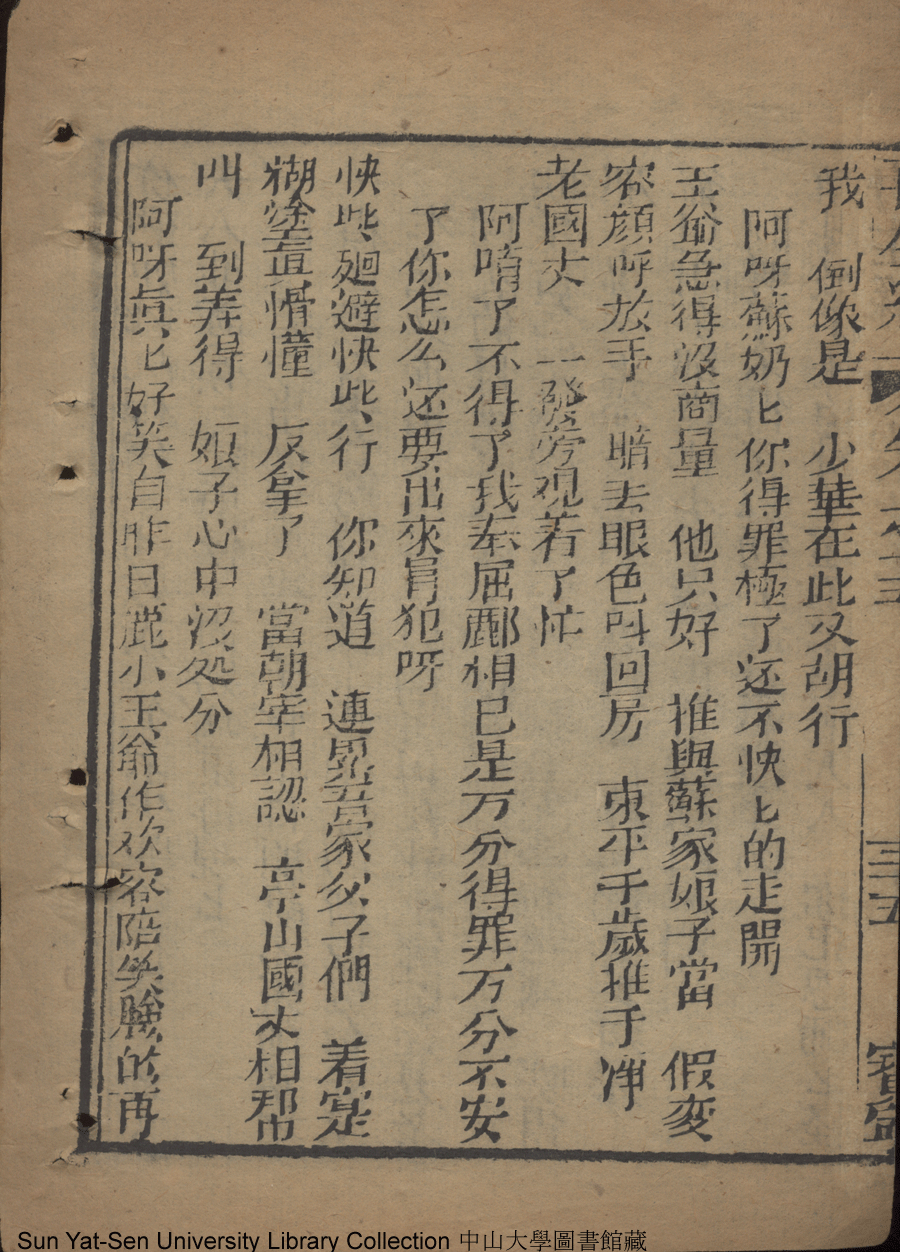 三五
寶寧
我　倒像是　少華在此又胡行
阿呀蘇奶匕你得罪極了还不快匕的走開
王爺急得沒商量　他只好　推與蘇家娘子當　假変
容顔呼放手　暗去眼色呌回房　東平千歲推干净
老國丈　一發旁观着了忙
阿唷了不得了我奉屈酈相已是万分得罪万分不安
了你怎么还要出來肩犯呀
快些廻避快些行　你知道　連累吾家父子們　着寔
糊塗眞懵懂　反拿了　當朝宰相認　亭山國丈相帮
叫　到弄得　娘子心中沒处分
阿呀眞匕好笑自昨日鹿小王爺作欢容陪笑臉的再
Sun Yat-Sen University Library Collection 中山大學圖書館藏